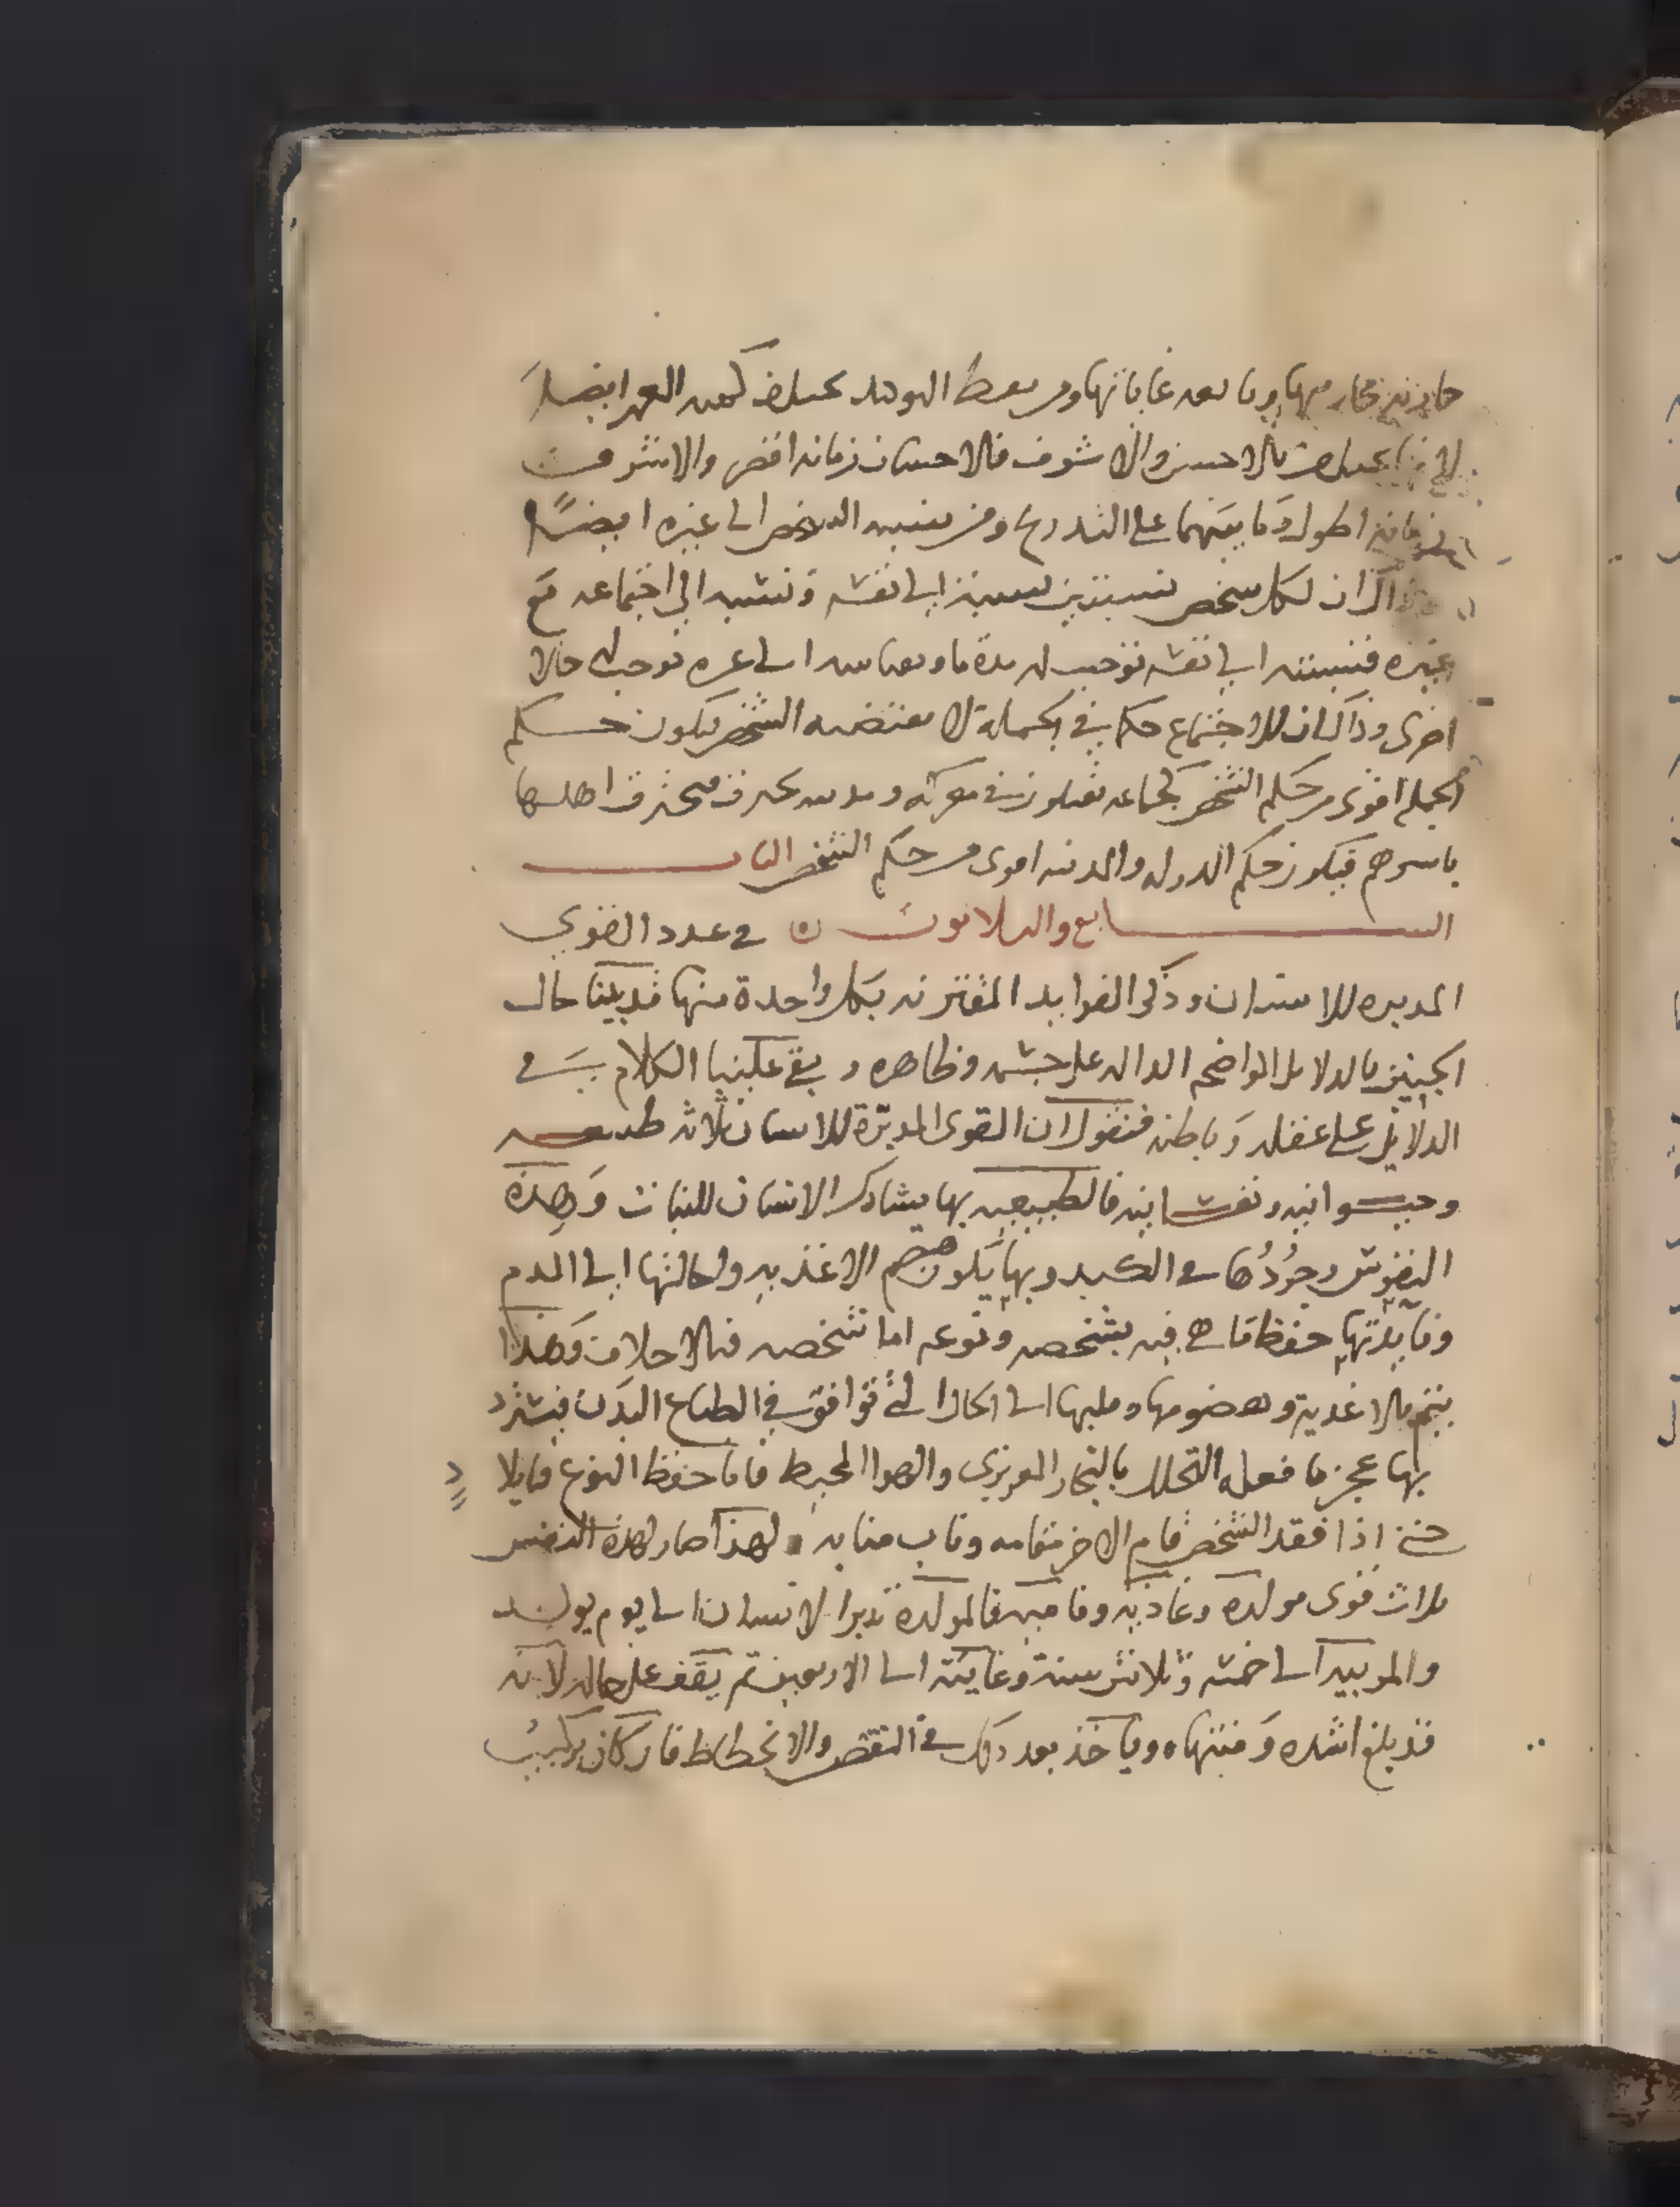 وما بعد غاياتها ومن معط الهوهد يختلف كمه العمر ايضا
لانها يختلف بالاحسن والاشرف فالاحسان زمانه اقصر والاشرف
زمانه اطول وما بينهما على التدريج ومن نسبه الشخص الى غيره ايضا
وذاك ان لكل شخص نسبتين نسبة الى نفسه ونسبه الى اجتماعه مع
غيره فنسبته الى نفسه توجب له مدة ما ونسبته الى غيره توجب له حالا
اخرى وذاك ان للاجتماع حكما في الجملة لا يقتضيه الشخص فيكون حكم
الجملة اقوى من حكم الشخص كجماعه يقتلون في معركه ومدينه تحترق فيحترق اهلها
باسرهم فيكون حكم الدوله والمدينه اقوى من حكم الشخص الباب
السابع والثلاثون ه في عدد القوى
المدبره للانسان وذكر الفوايد المقترنه بكل واحدة منها قد بينا حال
الجنين بالدلايل الواضحه الداله على جسمه وظاهره وبقي علينا الكلام في
الدلايل على عقله وباطنه فنقول ان القوى المدبرة للانسان ثلاثه طبيعيه
وحيوانيه ونفسانيه فالطبيعيه بها يشارك الانسان للنبات وهذه
النفوس وجودها في الكبد وبها يكون هضم الاغذيه واحالتها الى الدم
وفايدتها حفظ ما هي فيه بشخصه ونوعه اما شخصه فبالاخلاف وهذا
يتم بالاغذية وهضومها وقلبها الى الحال التي توافق في الطباع البدن فيسترد
بها عجز ما فعله التحلل بالبخار الغريزى والهوا المحيط فاما حفظ النوع فايلا
حتى اذا فقد الشخص قام الاخر مقامه وناب منابه ولهذا صار لهذه النفس
ثلاث قوى مولده وغاذيه وناميه فالمولده تدبر الانسان الى يوم يولد
والمربيه الى خمسه وثلاثين سنة وغايته الى الاربعين ثم يقف على حاله لانه
قد بلغ اشده ومنتهاه وياخذ بعد ذلك في النقص والانحطاط فان كان تركيب